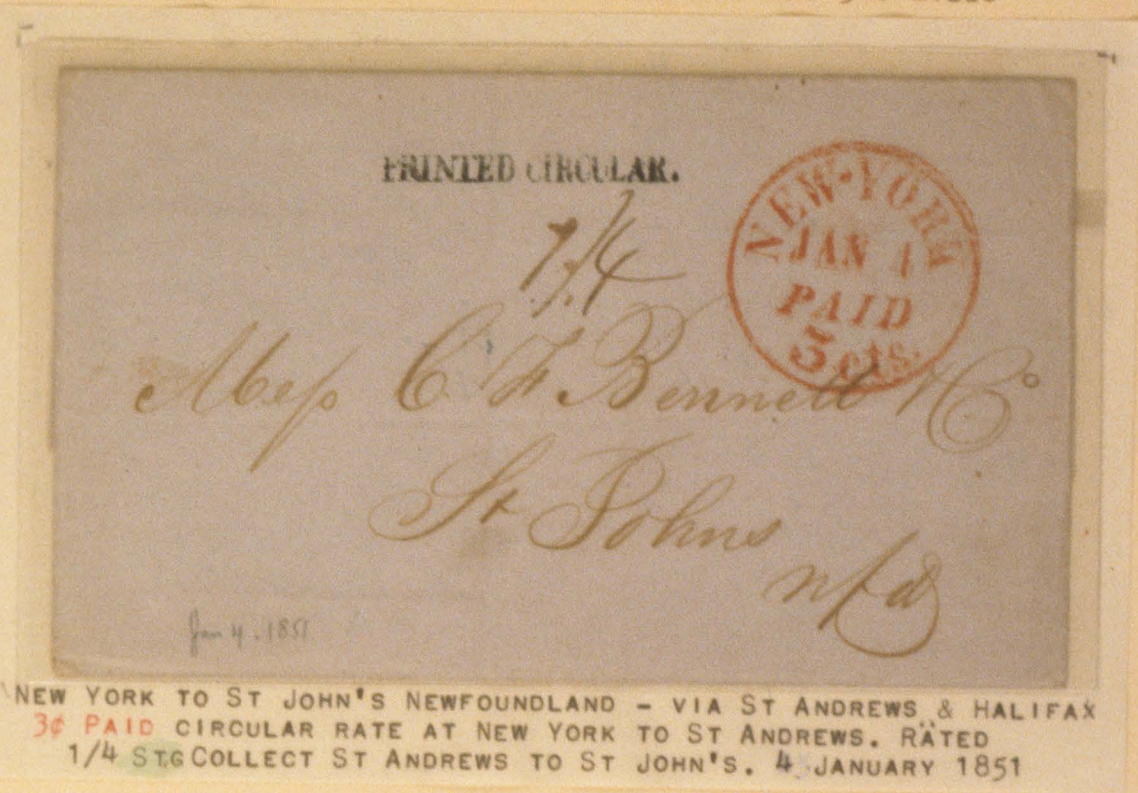 PRINTED CIRCULAR.
NEW-YORK
JAN 4
PAID
3 cts.
1/4
Mess C F Bennett & Co
St Johns
nfd
Jan 4. 1851
NEW YORK TO ST JOHN'S NEWFOUNDLAND - VIA ST ANDREWS & HALIFAX
3¢ PAID CIRCULAR RATE AT NEW YORK TO ST ANDREWS. RATED
1/4 STG COLLECT ST ANDREWS TO ST JOHN'S. 4 JANUARY 1851